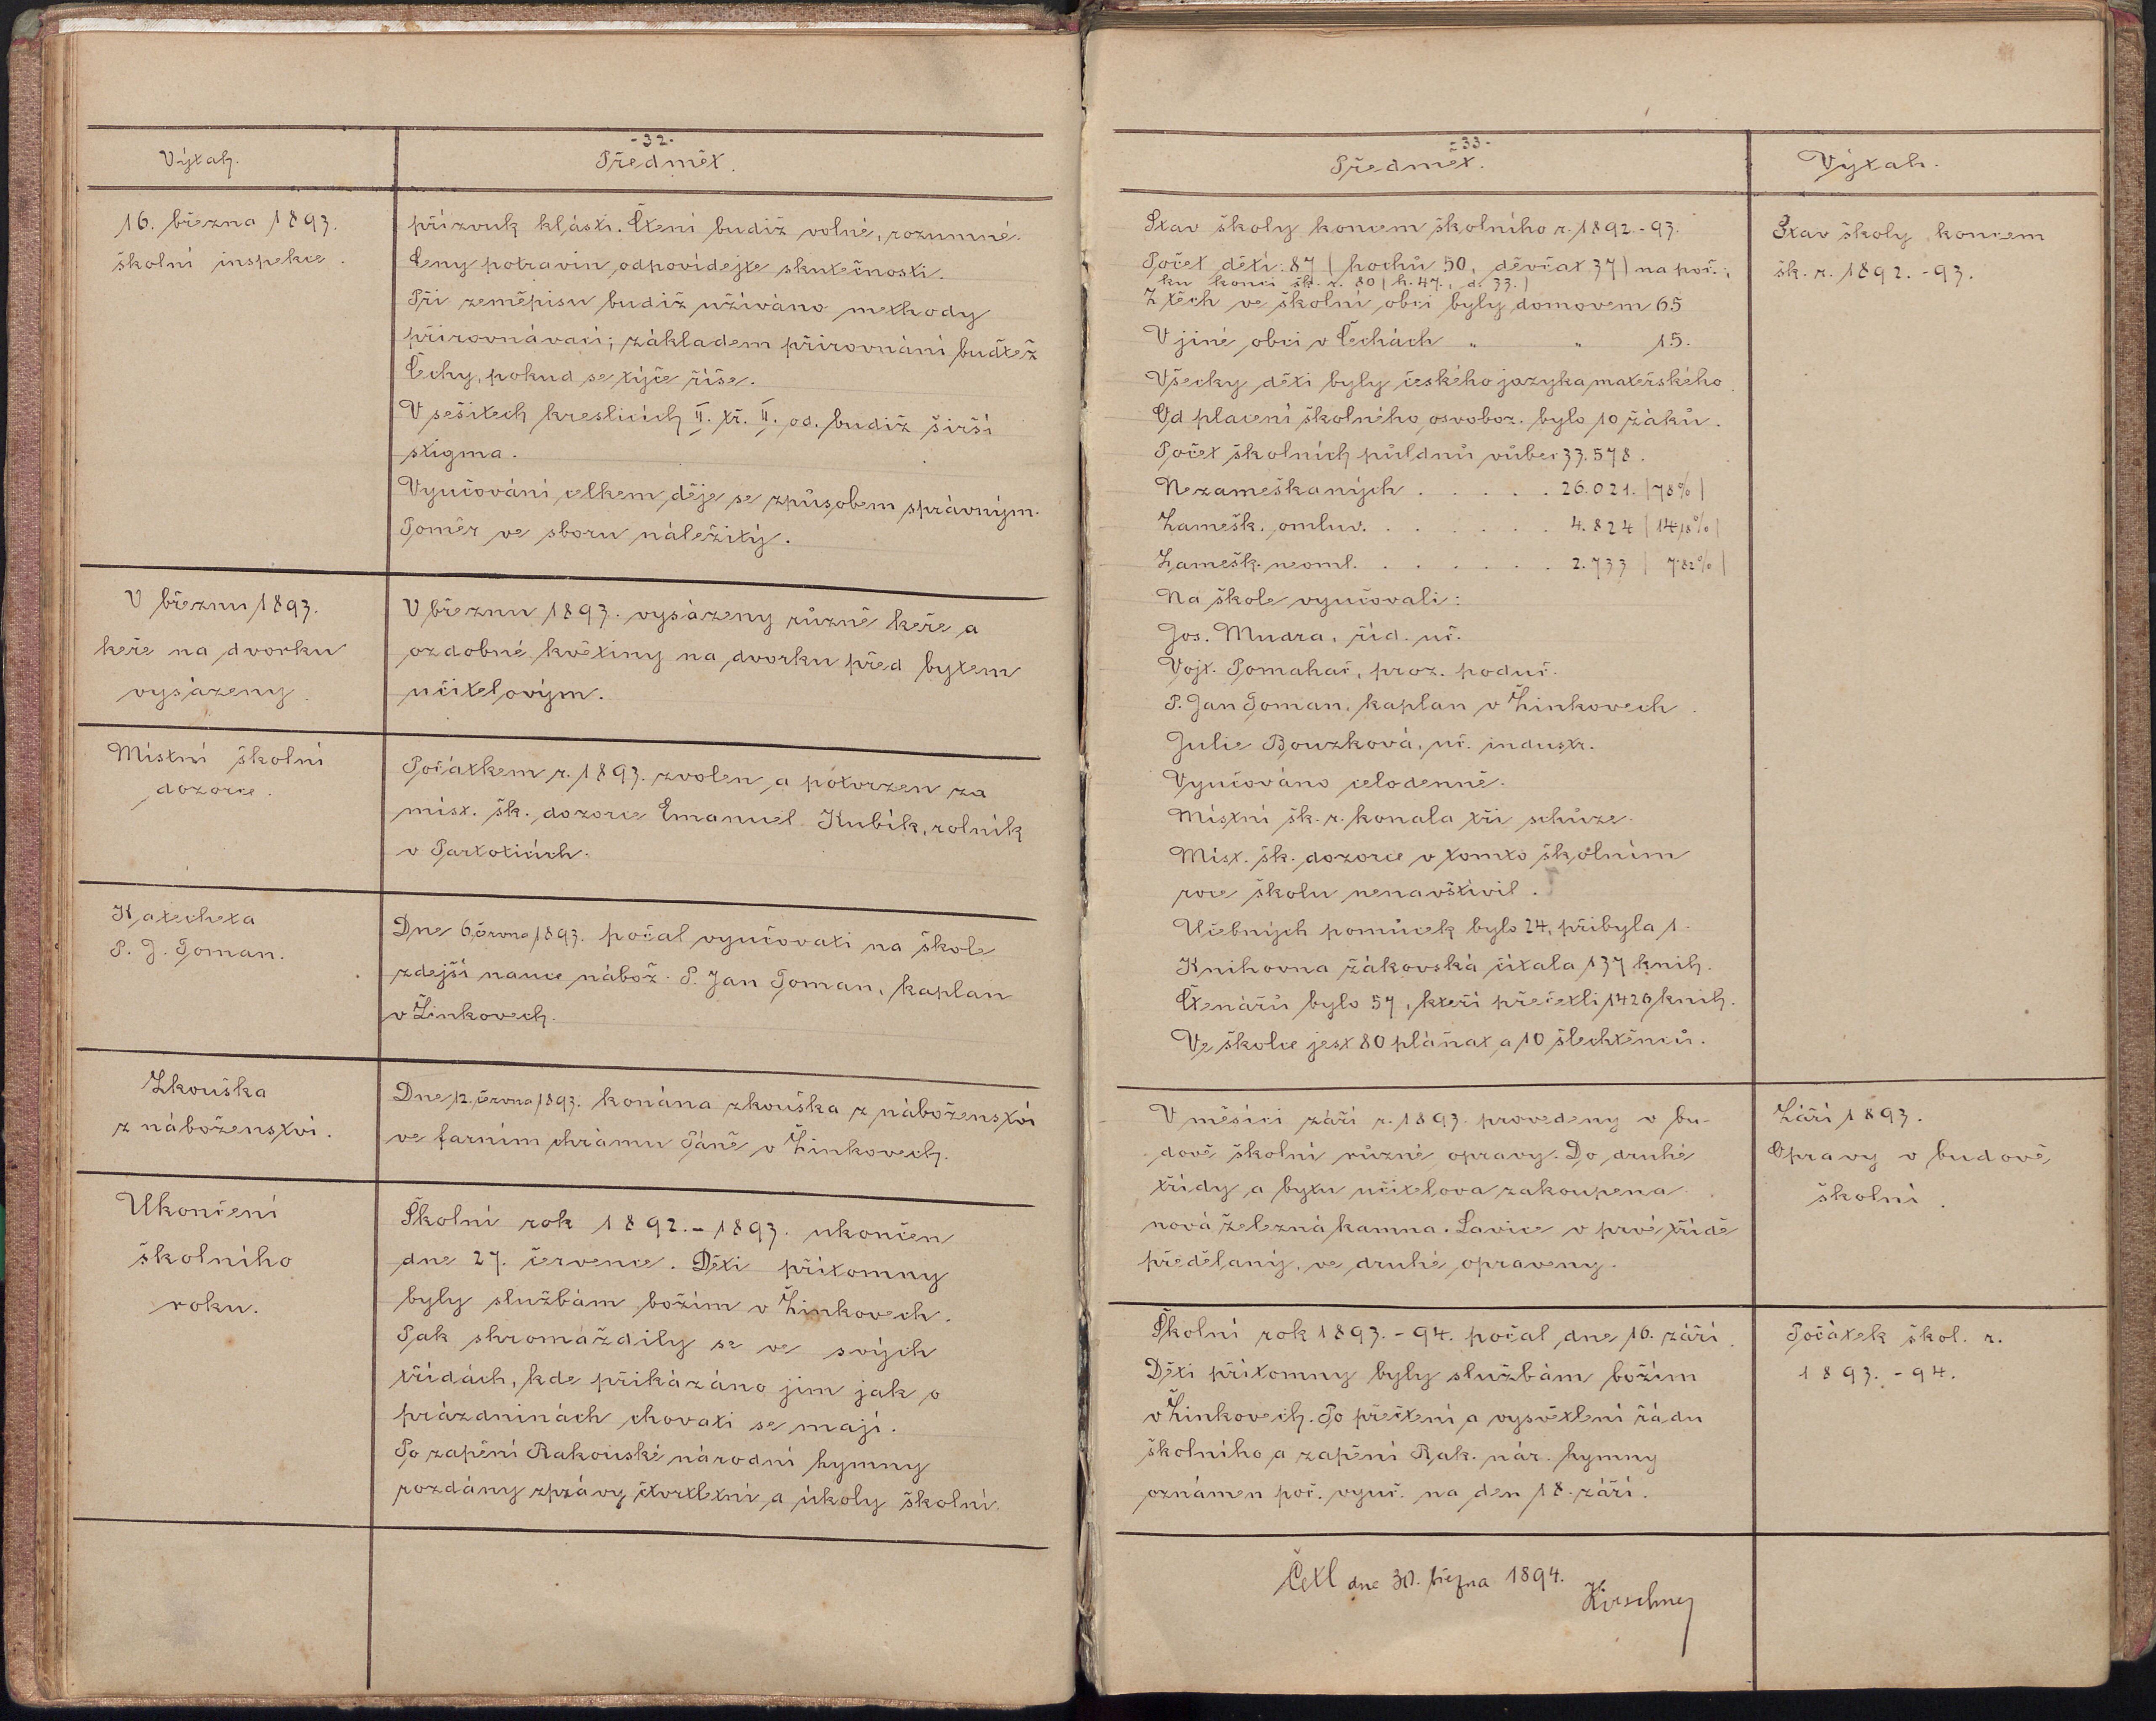 -32-
Výtah.
Předmět.
16. března 1893.
školní inspekce.
přízvuk klásti. Čtení budiž volné, rozumné.
Ceny potravin odpovídejte skutečnosti.
Při zeměpisu budiž užíváno methody
přirovnávací; základem přirovnání buďtež
Čechy, pokud se týče říše.
V sešitech kreslicích II. tř. II. od. budiž širší
stigma.
Vyučování celkem děje se způsobem správným.
Poměr ve sboru náležitý.
V březnu 1893.
keře na dvorku
vysázeny.
V březnu 1893. vysázeny různé keře a
ozdobné květiny na dvorku před bytem
učitelovým.
Místní školní
dozorce.
Počátkem r. 1893. zvolen a potvrzen za
míst. šk. dozorce Emanuel Kubík, rolník
v Partoticích.
Katecheta
P. J. Toman.
Dne 6. června 1893. počal vyučovati na škole
zdejší nauce nábož. P. Jan Toman, kaplan
v Žinkovech.
Zkouška
z náboženství.
Dne 12. června 1893. konána zkouška z náboženství
ve farním chrámu Páně v Žinkovech.
Ukončení
školního
roku.
Školní rok 1892.-1893. ukončen
dne 27. července. Děti přítomny
byly službám božím v Žinkovech.
Pak shromáždily se ve svých
třídách, kde přikázáno jim jak o
prázdninách chovati se mají.
Po zapění Rakouské národní hymny
rozdány zprávy čtvrtletní a úkoly školní.
-33-
Předmět.
Výtah.
Stav školy koncem školního r. 1892.-93.
Počet dětí: 87 (hochů 50, děvčat 37) na poč.;
ku konci šk. r. 80 (h. 47., d. 33.)
Z těch ve školní obci byly domovem 65
V jiné obci v Čechách " " 15.
Všecky děti byly českého jazyka mateřského.
Od placení školného osvoboz. bylo 10 žáků.
Počet školních půldnů vůbec 33.578.
Nezameškaných . . . . . 26.021. (78%)
Zamešk. omluv. . . . . . . 4.824 (14,18%)
Zamešk. neoml. . . . . . . 2.733 (7.82%)
Na škole vyučovali:
Jos. Mudra, říd. uč.
Vojt. Pomahač, proz. poduč.
P. Jan Toman, kaplan v Žinkovech.
Julie Bouzková, uč. industr.
Vyučováno celodenně.
Místní šk. r. konala tři schůze.
Míst. šk. dozorce v tomto školním
roce školu nenavštívil.
Učebných pomůcek bylo 24, přibyla 1.
Knihovna žákovská čítala 137 knih.
Čtenářů bylo 57, kteří přečetli 1426 knih.
Ve školce jest 80 pláňat a 10 šlechtěnců.
Stav školy koncem
šk. r. 1892.-93.
V měsíci září r. 1893. provedeny v bu-
dově školní různé opravy. Do druhé
třídy a bytu učitelova zakoupena
nová železná kamna. Lavice v prvé třídě
předělaný, ve druhé opraveny.
Září 1893.
Opravy v budově
školní.
Školní rok 1893.-94. počal dne 16. září.
Děti přítomny byly službám božím
v Žinkovech. Po přečtení a vysvětlení řádu
školního a zapění Rak. nár. hymny
oznámen poč. vyuč. na den 18. září.
Počátek škol. r.
1893.-94.
Četl dne 30. března 1894.
Kirschner